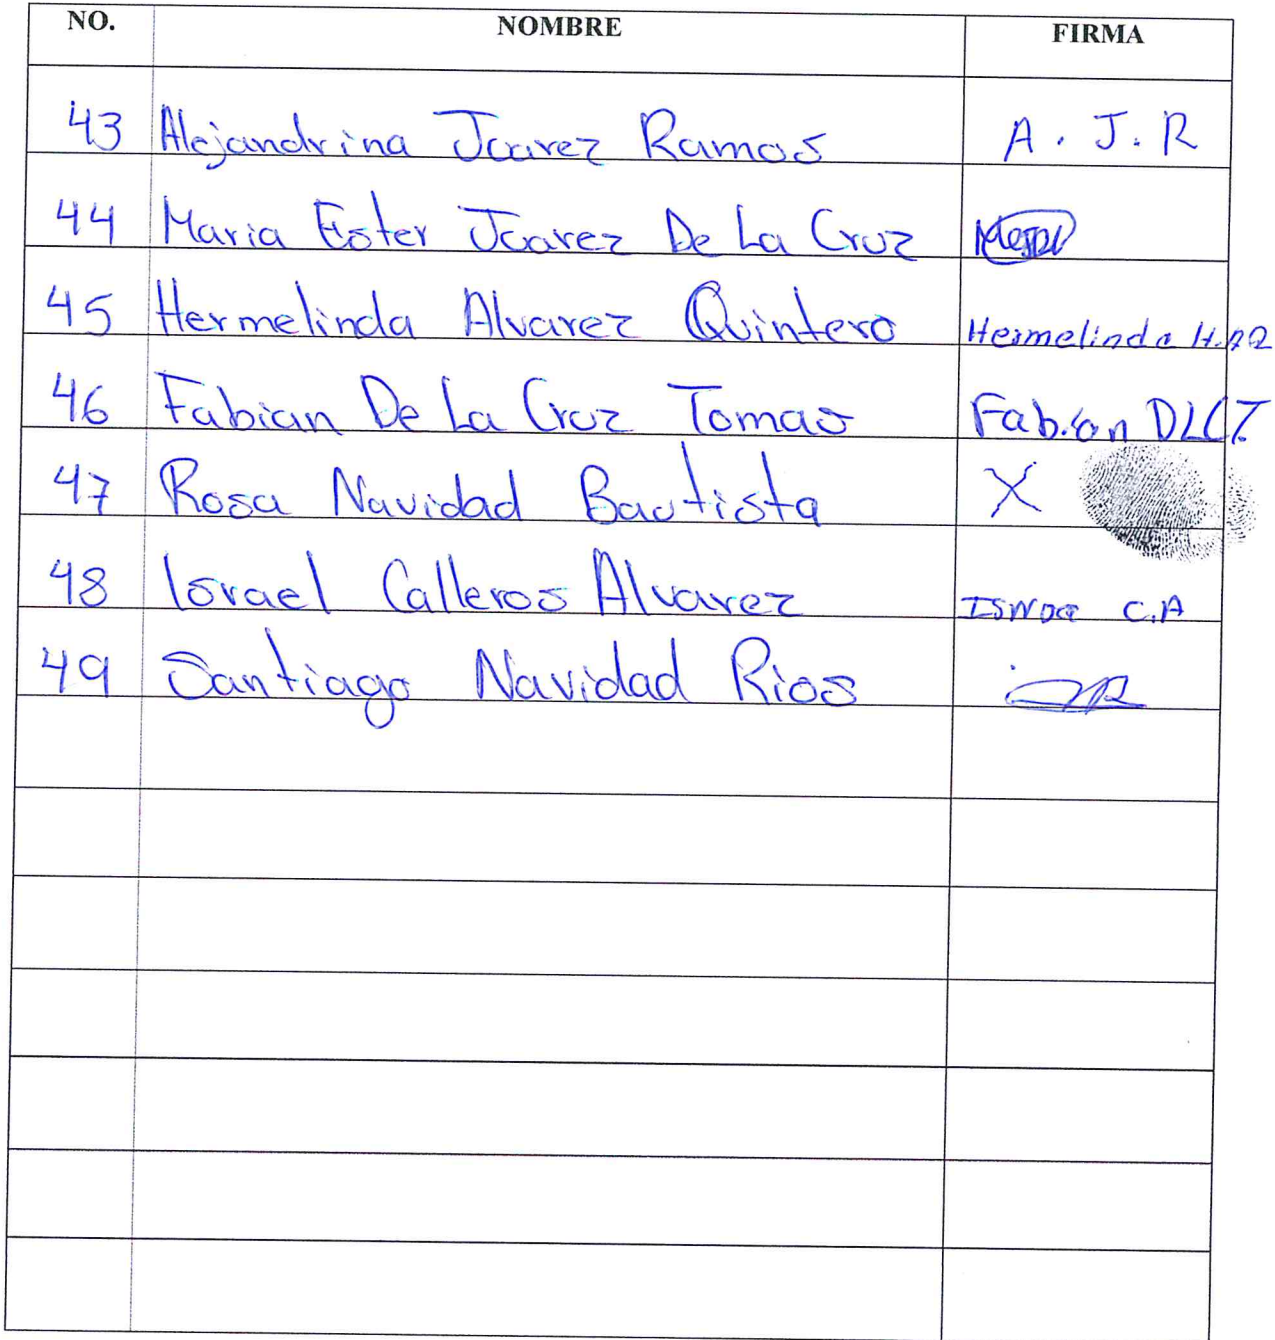 NO. NOMBRE FIRMA
43 Alejandrina Juarez Ramos A. J. R
44 Maria Ester Juarez De La Cruz
45 Hermelinda Alvarez Quintero Hermelinda
46 Fabian De La Cruz Tomas Fabian DLCT
47 Rosa Navidad Bautista X
48 Israel Calleros Alvarez C.A
49 Santiago Navidad Rios